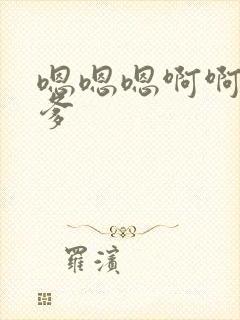 嗯嗯嗯啊啊
爹
羅濱